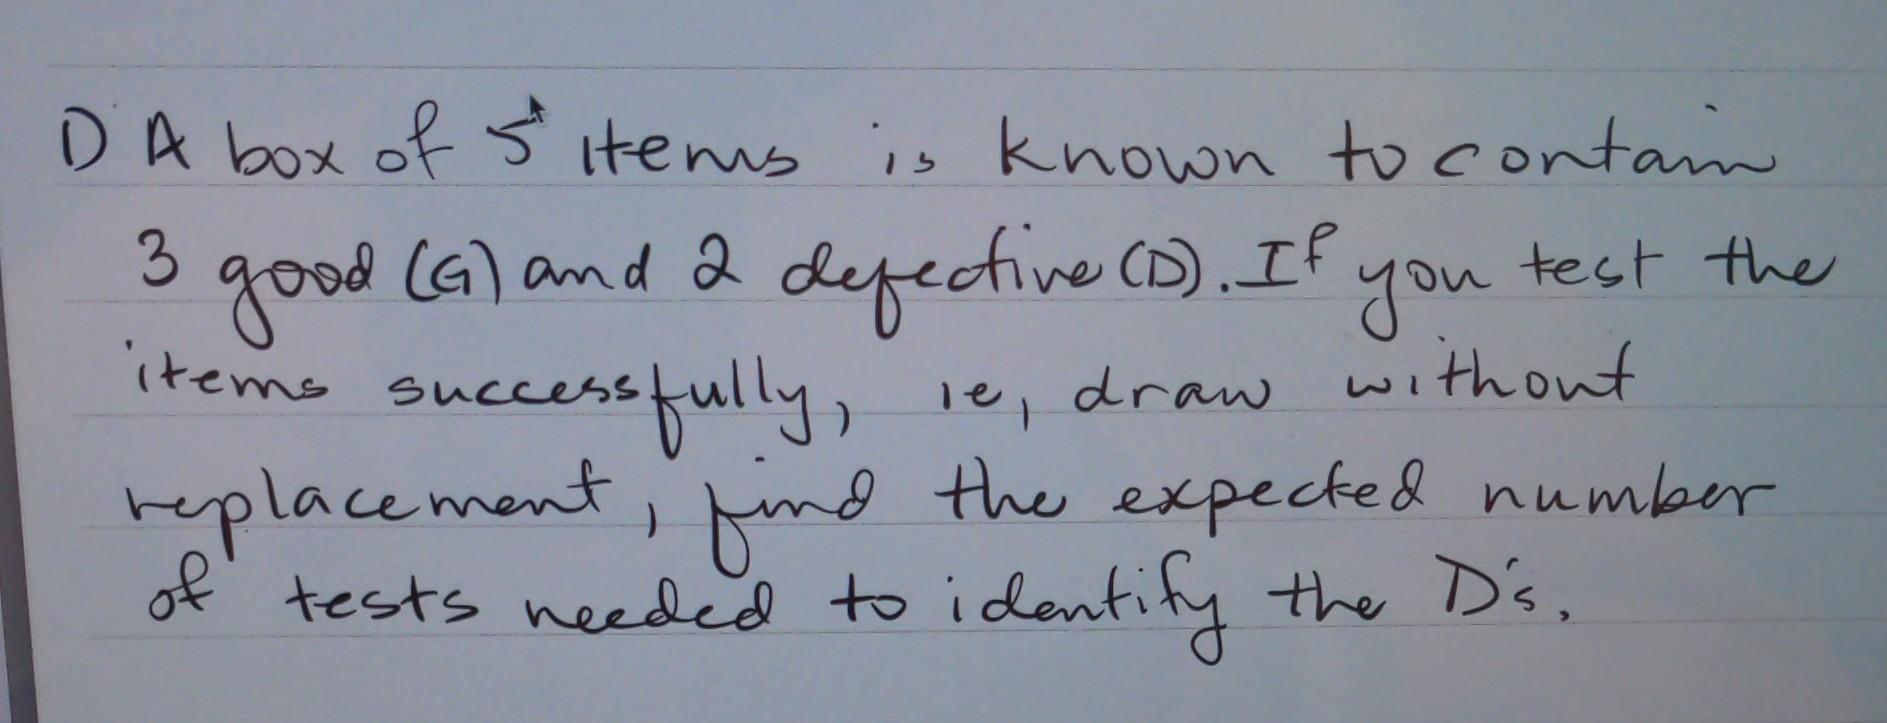 D A box of 5 items is known to contain
3 good (G) and 2 defective (D). If you test the
items successfully, ie, draw without
replacement, find the expected number
of tests needed to identify the D's.